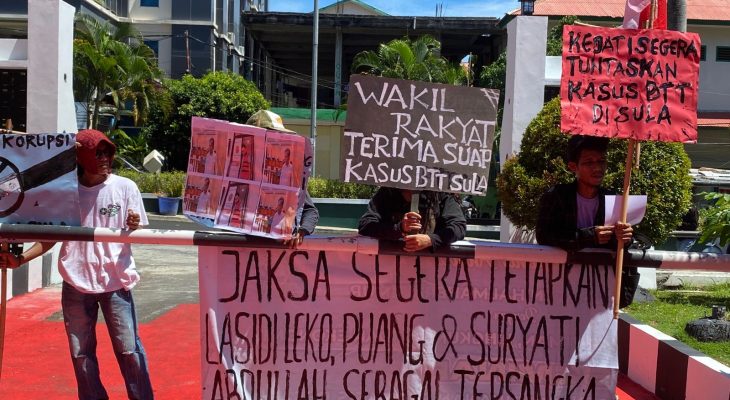 KORUPSI
WAKIL
RAKYAT
TERIMA SUAP
KASUS BTT SULA
KEJATI SEGERA
TUNTASKAN
KASUS BTT
DI SULA
JAKSA SEGERA TETAPKAN
LASIDI LEKO, PUANG & SURYATI
ABDULLAH SEBAGAI TERSANGKA